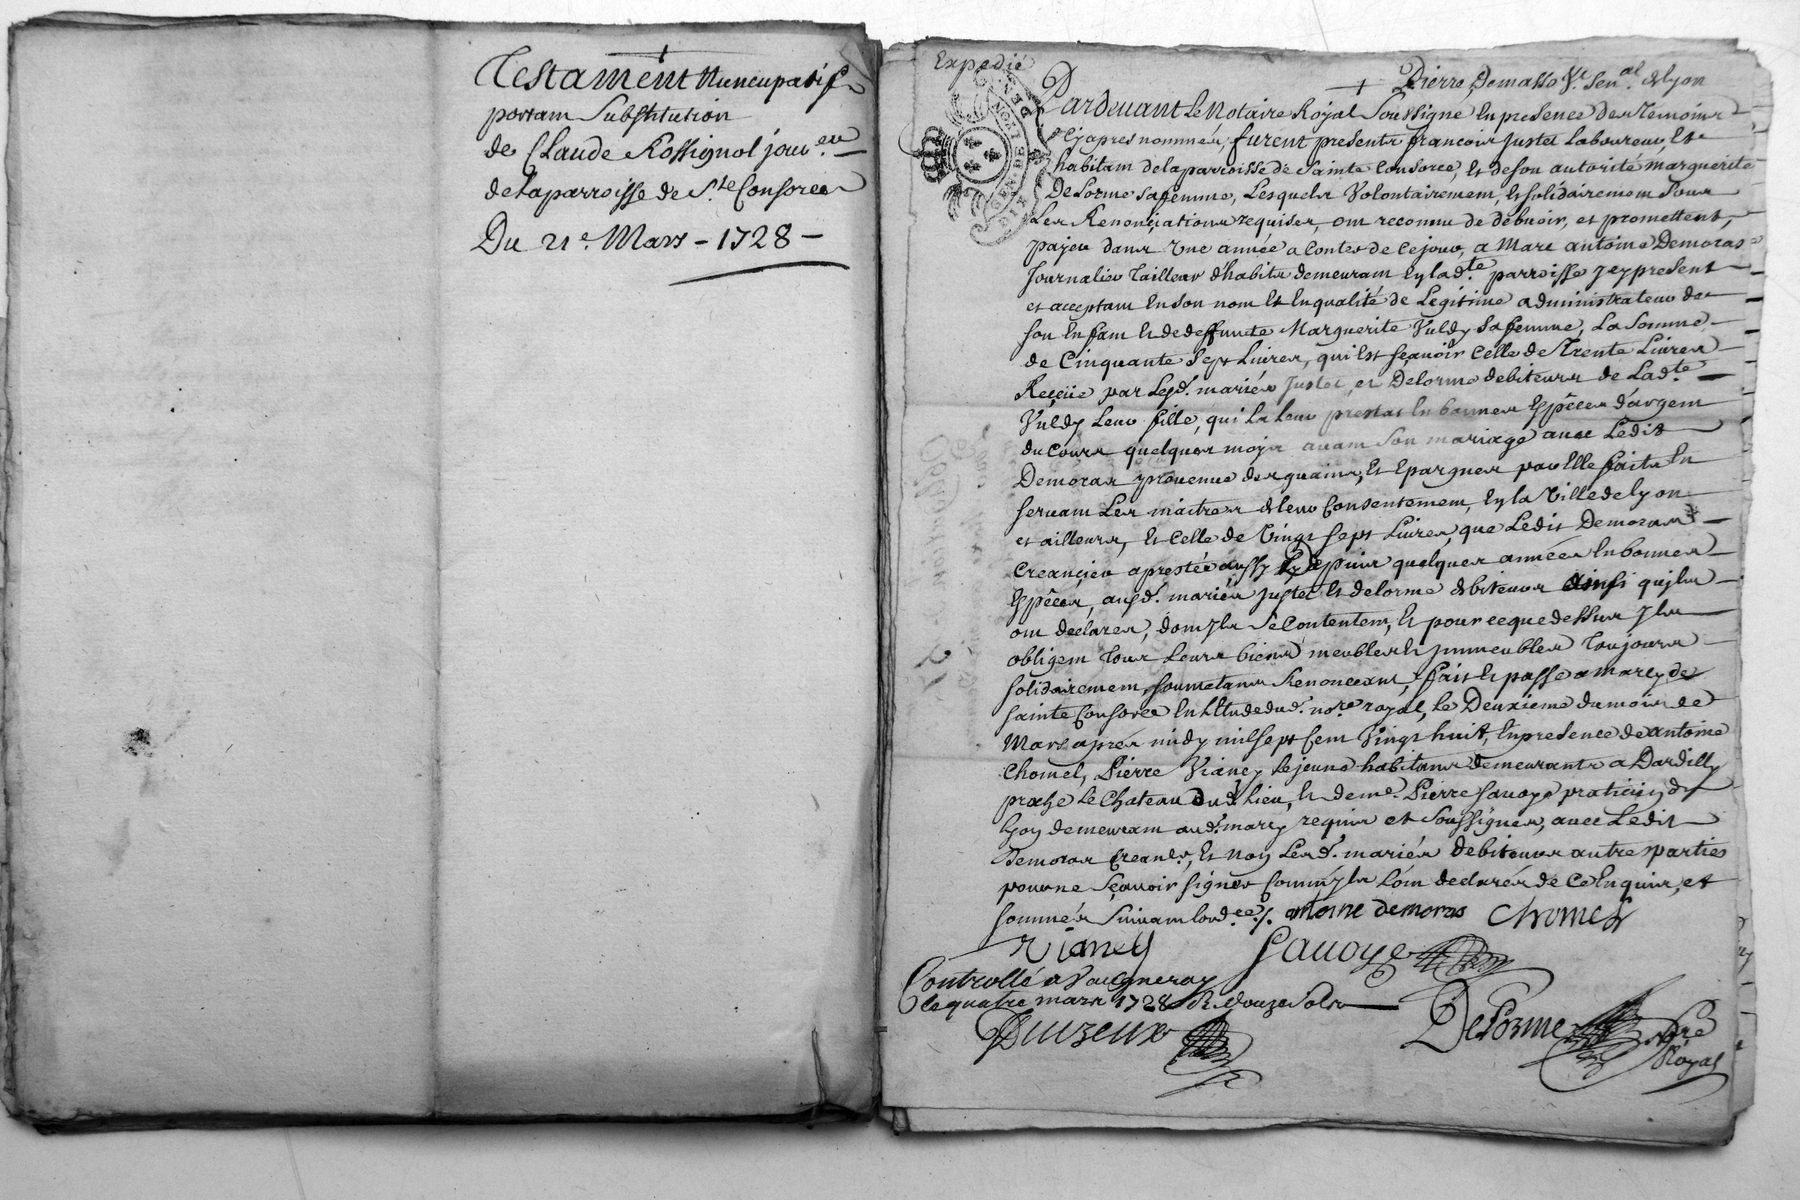 Testament Nuncupatif
portam Substitution
de Claude Rossignol jour.eu
de la parroisse de Ste Consorce
Du 21e. Mars - 1728 -
Expedié
GEN. DE LYON
Pardevant Le Notaire Royal Soussigné En presence des temoins
Cy apres nommés, furent presents francois Juttet Laboureur, Et
habitam de la parroisse de Sainte Consorce, Et de son autorité marguerite
DeLorme sa femme, Lesquels Volontairement, et solidairement Sous
Les Renonciations requises, ont reconnu de debvoir, et promettent,
payer dans Une année a Conter de Ce jour, a Marc antoine Demoras
Journalier Tailleur d'habits demeuram En lad.te parroisse Icy present
et acceptam En son nom Et En qualité de Legitime administrateur de
son Enfam Et de deffuncte Marguerite Vuldy sa femme, La Somme
de Cinquante Sept Livres, qui Est sçavoir Celle de Trente Livres
Reçüe par Lesd. mariés Juttet et Delorme debiteurs de Lad.te
Vuldy Leur fille, qui La Leur prestat En bonnes Espêces d'argent
du Cours quelques moys avam Son mariage avec Ledit
Demoras provenue des guains, Et Epargnes par Elle faits En
servam Les maitres de leur Consentement, En la Ville de Lyon
et ailleurs, Et Celle de Vingt sept Livres, que Ledit Demoras
Creancier a presté aussy Depuis quelques années En bonnes
Espêces, ausd. mariés Juttet Et delorme debiteurs ainsi qu'ils
om declarés, dom Ils Se Contentem, Et pour ce que dessus Ils
obligem Tous Leurs biens meubles Et Immeubles Toujours
solidairement, soumetans Renonceant, fait Et passé a marcy de
sainte Consorce En L'Etude dud. no.re royal, Le Deuxieme du mois de
Mars après midy mil sept Cem Vingt huit, En presence de antoine
Chomel, Pierre Vianey Le jeune habitans demeurants a Dardilly
proche Le Chateau dud. Lieu, Et de me. Pierre Savoye praticien de
Lyon demeuram aud. marcy requis et Soussignés, avec Ledit
Demoras Creanc.r, Et non Lesd. mariés debiteurs autres parties
pour ne Sçavoir Signer Comm'Ils L'om declarés de Ce Enquis, et
sommés Suivam L'ord.ce /. antoine demoras Chomel
Vianey Savoye
Controllé a Vaugneray
le quatre mars 1728 R. douze Sols
DeLorme no.re Royal